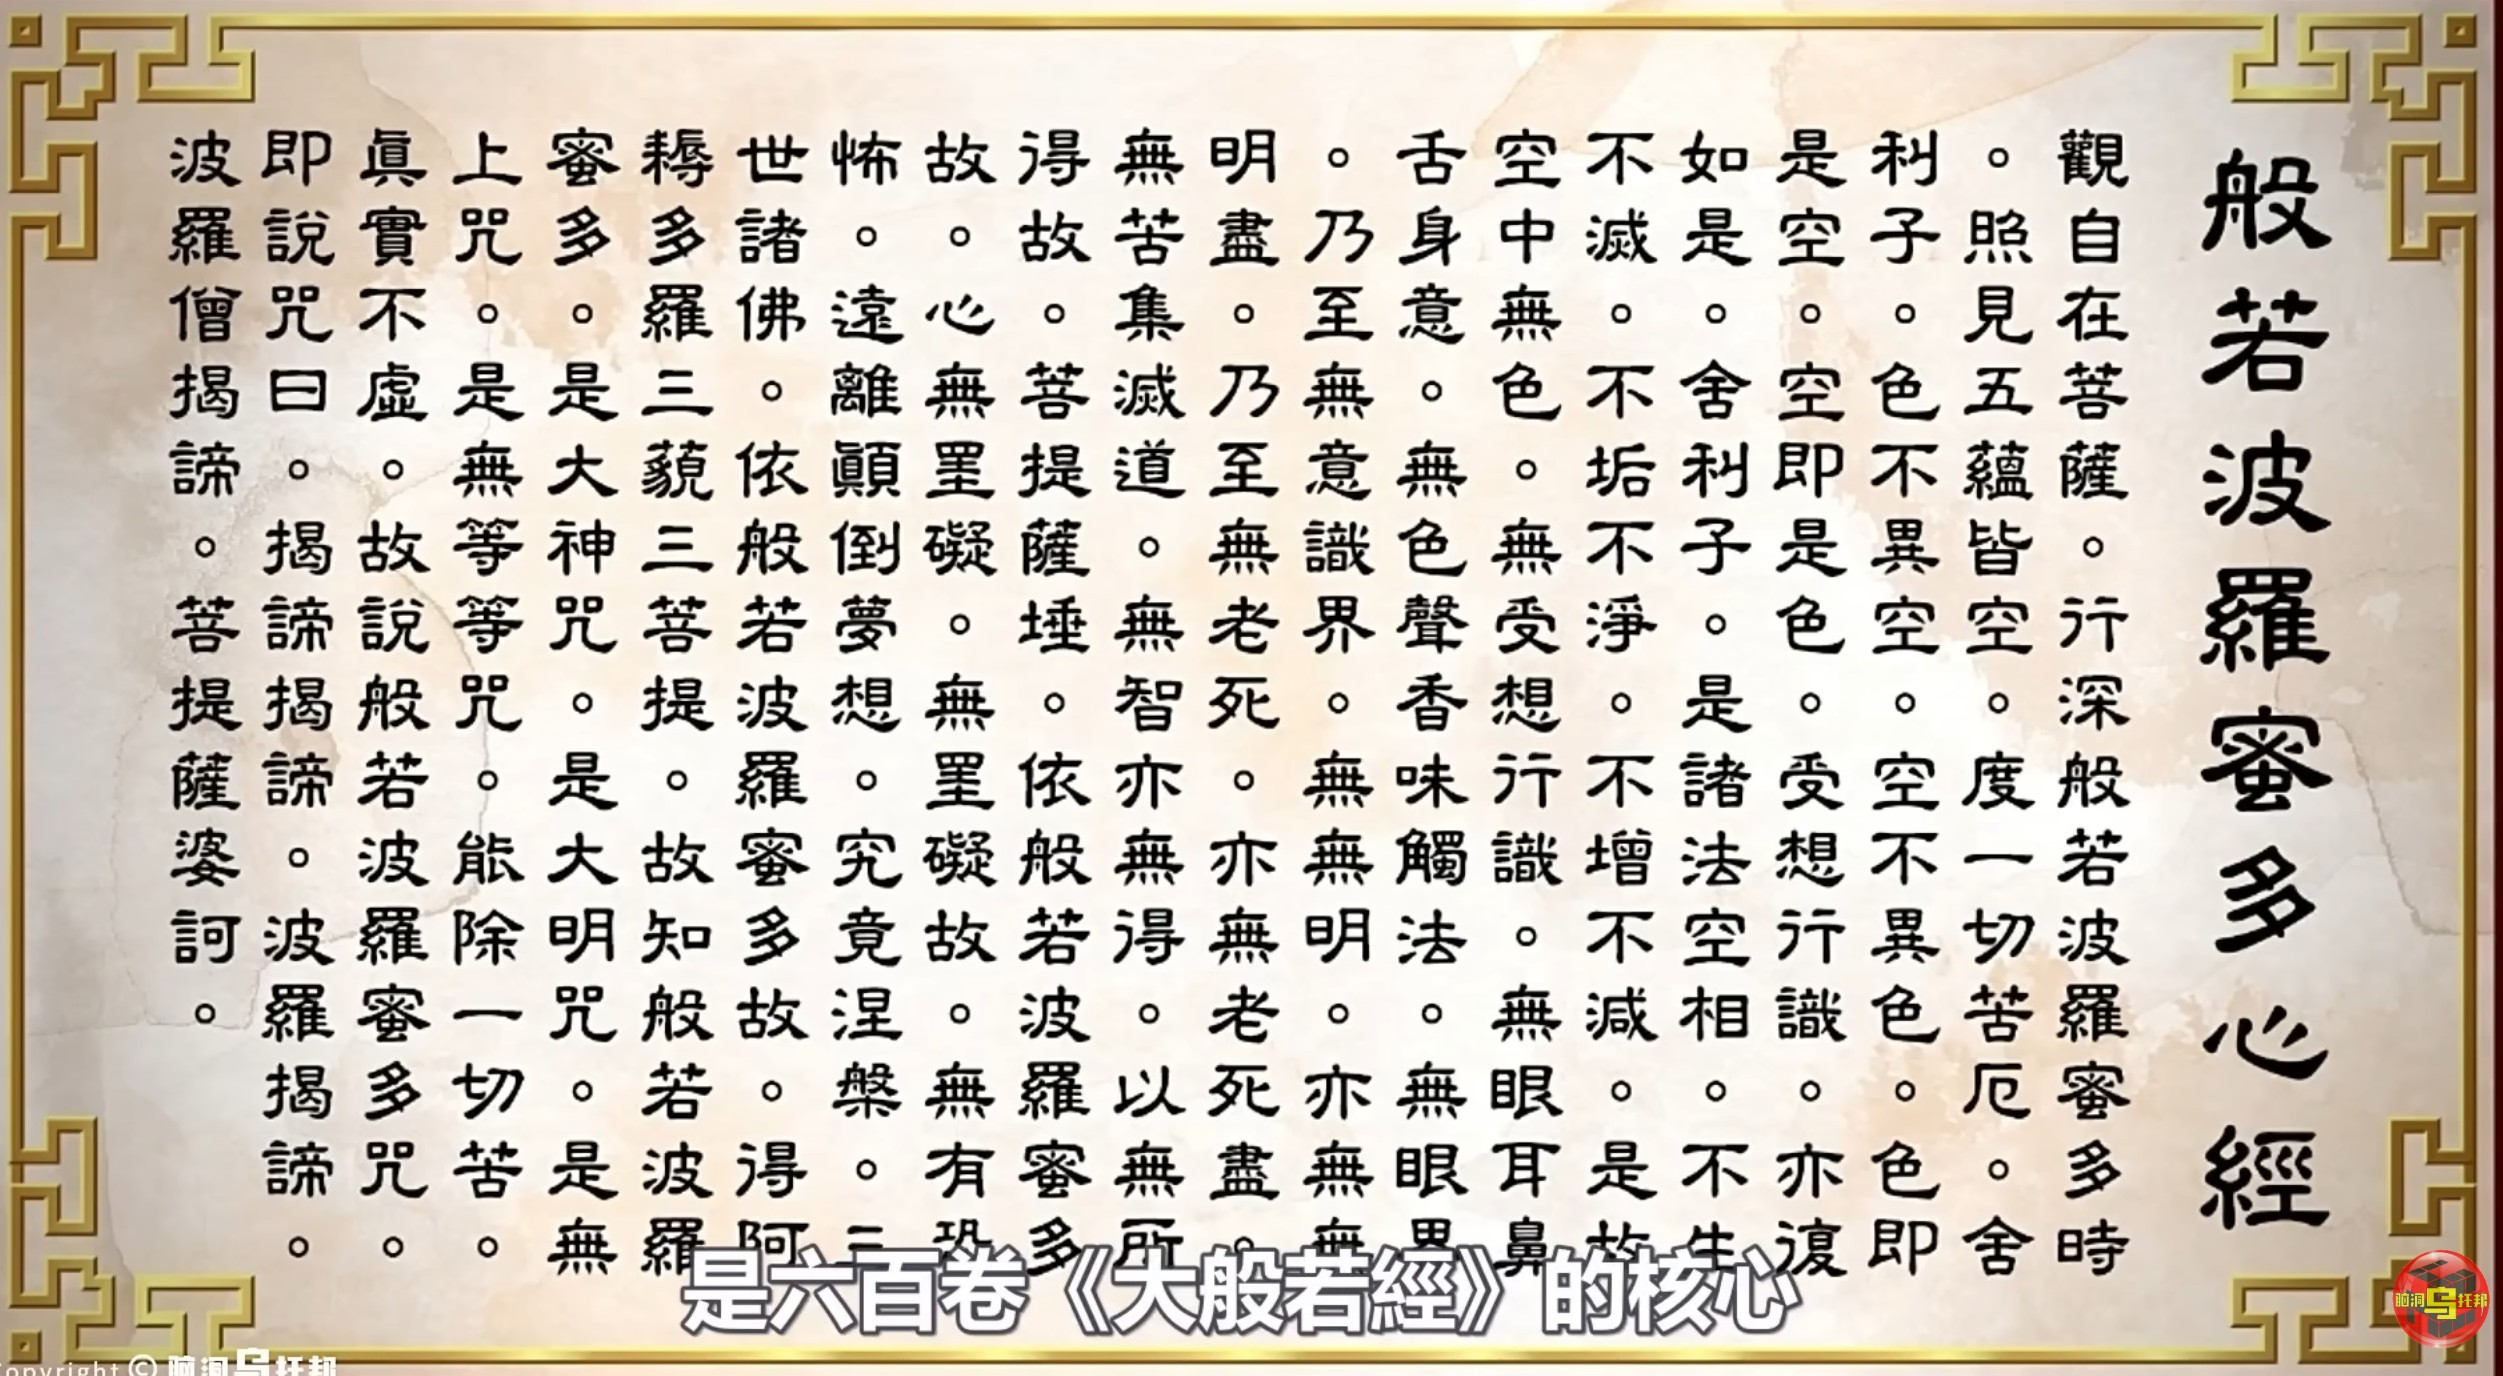 般若波羅蜜多心經
觀自在菩薩。行深般若波羅蜜多時
。照見五蘊皆空。度一切苦厄。舍
利子。色不異空。空不異色。色即
是空。空即是色。受想行識。亦復
如是。舍利子。是諸法空相。不生
不滅。不垢不淨。不增不減。是故
空中無色。無受想行識。無眼耳鼻
舌身意。無色聲香味觸法。無眼界
。乃至無意識界。無無明。亦無無
明盡。乃至無老死。亦無老死盡。
無苦集滅道。無智亦無得。以無所
得故。菩提薩埵。依般若波羅蜜多
故。心無罣礙。無罣礙故。無有恐
怖。遠離顚倒夢想。究竟涅槃。三
世諸佛。依般若波羅蜜多故。得阿
耨多羅三藐三菩提。故知般若波羅
蜜多。是大神咒。是大明咒。是無
上咒。是無等等咒。能除一切苦。
眞實不虛。故說般若波羅蜜多咒。
即說咒曰。揭諦揭諦。波羅揭諦。
波羅僧揭諦。菩提薩婆訶。
是六百卷《大般若經》的核心
脑洞乌托邦
Copyright © 脑洞乌托邦